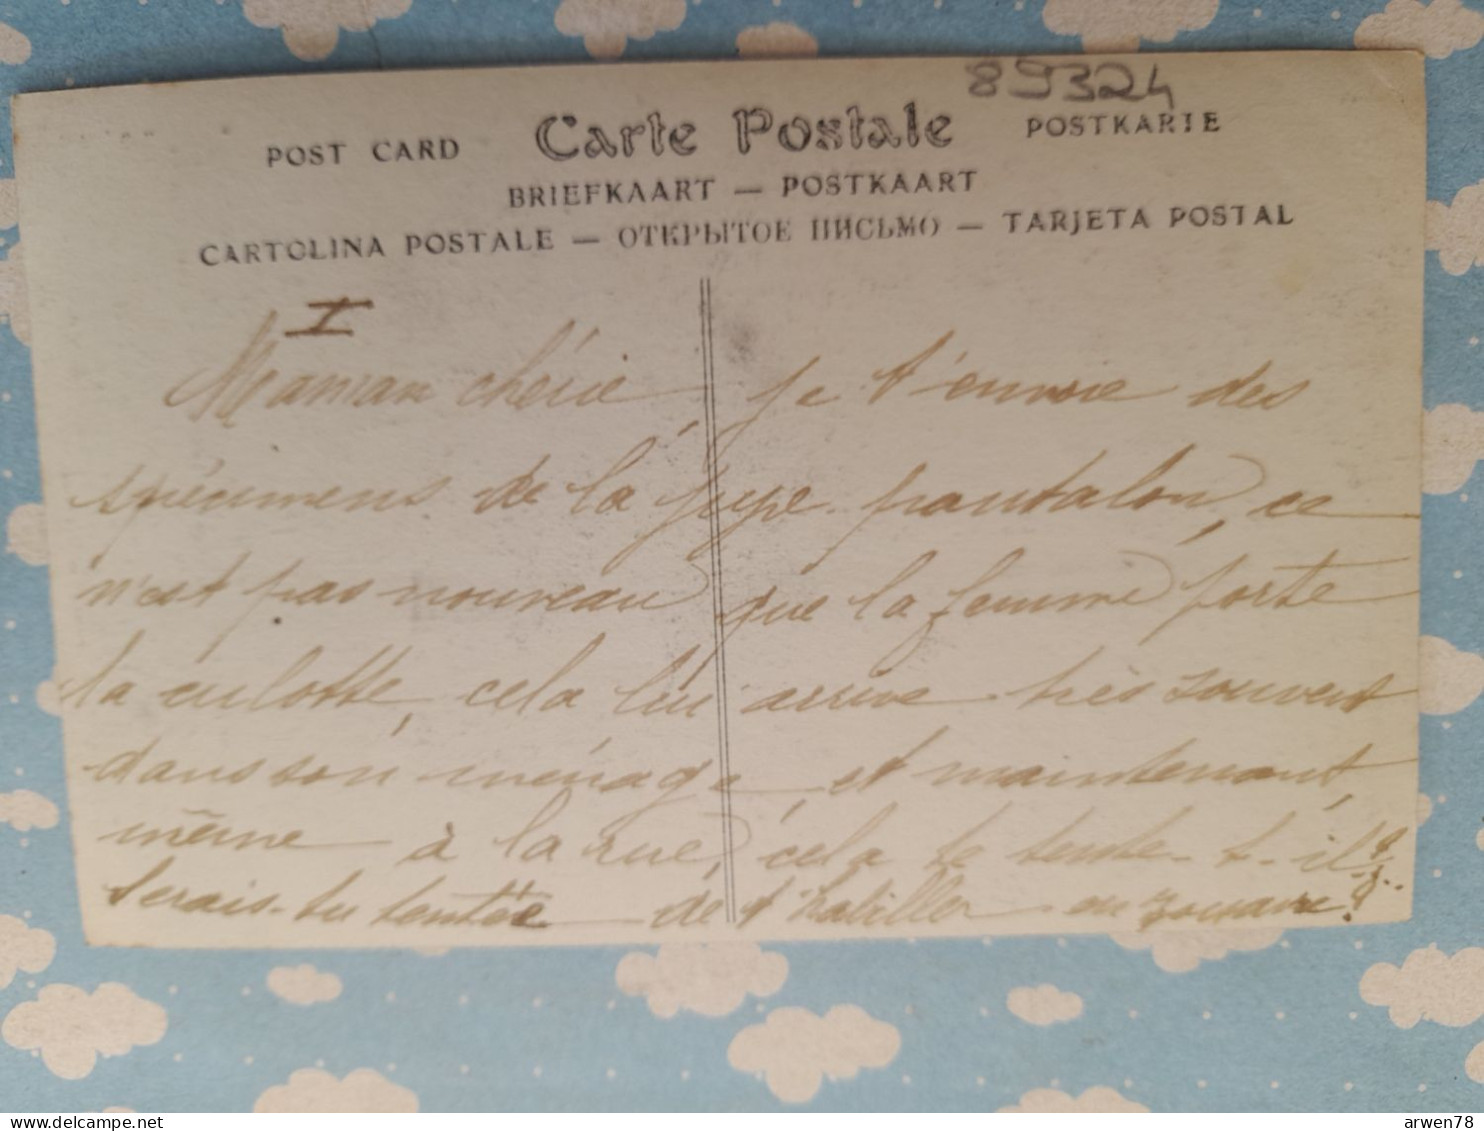 89324
POST CARD Carte Postale POSTKARTE
BRIEFKAART — POSTKAART
CARTOLINA POSTALE — ОТКРЫТОЕ ПИСЬМО — TARJETA POSTAL
I
Maman chérie, je t'envoie des
spécimens de la jupe pantalon, ce
n'est pas nouveau que la femme porte
la culotte, cela lui arrive très souvent
dans son ménage, et maintenant,
même à la rue, cela te tente-t-il?
Serais-tu tentée de t'habiller en zouave?
arwen78